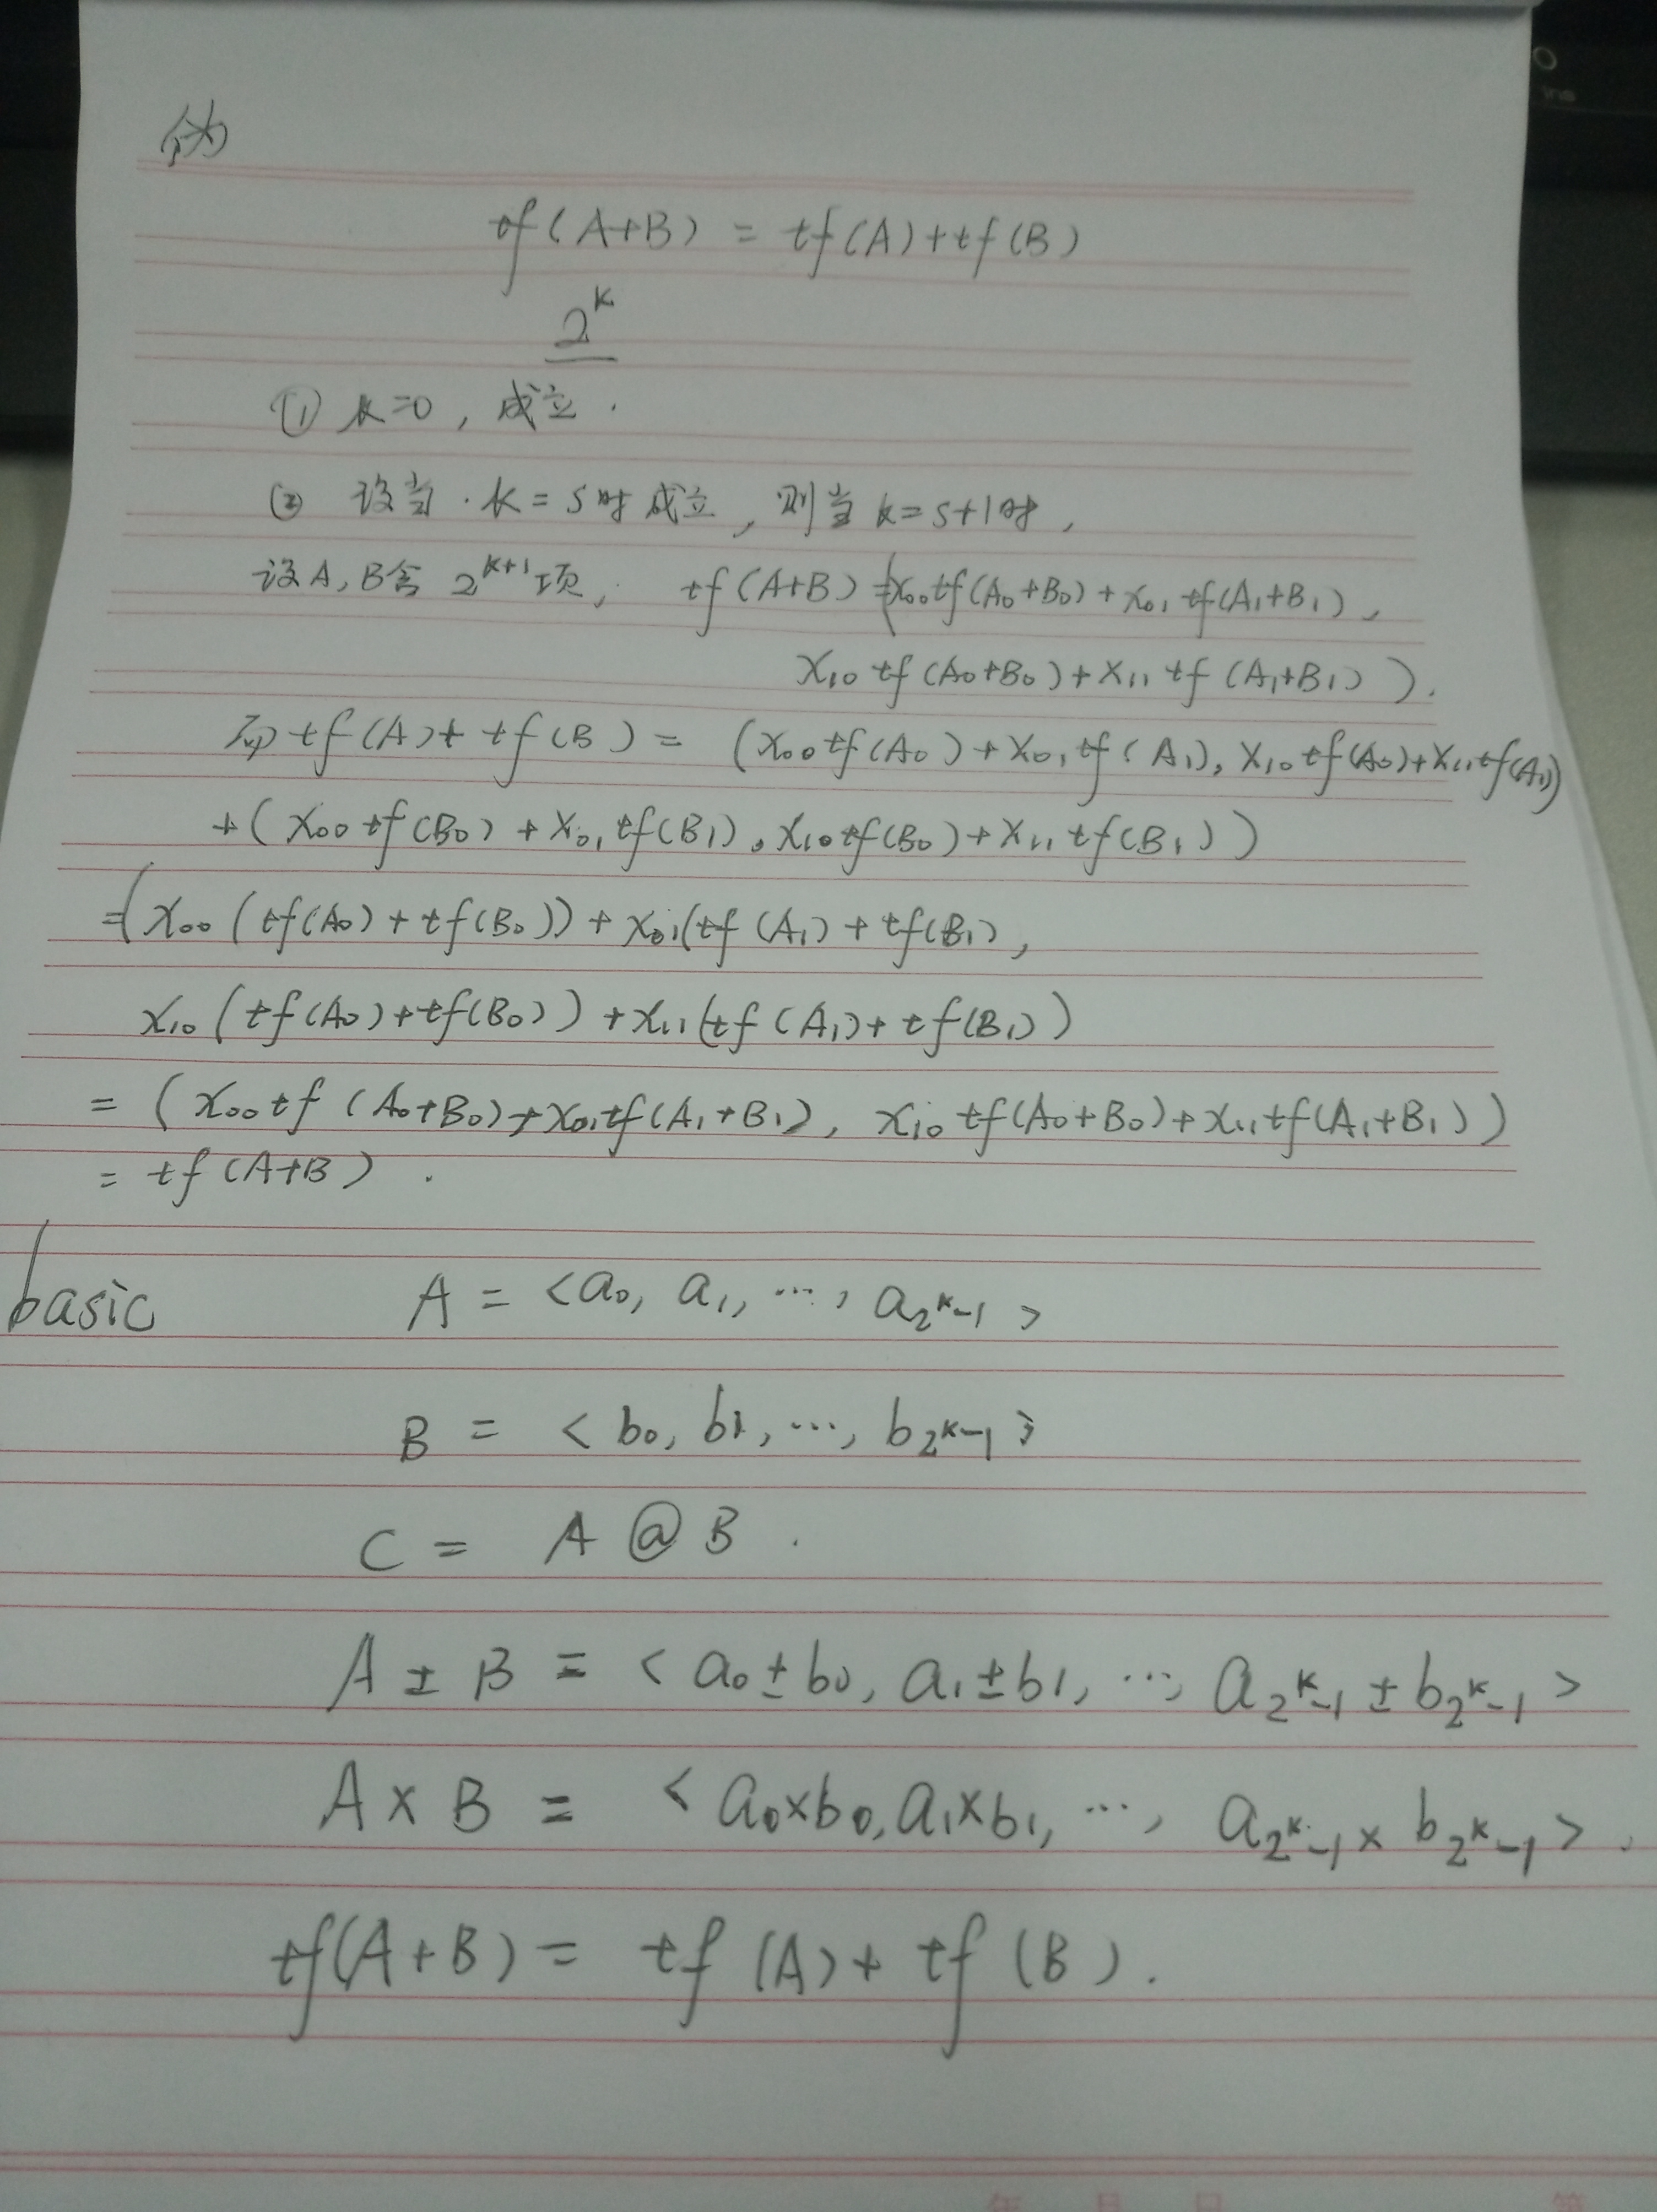 伪
tf(A+B) = tf(A)+tf(B)
2^k
① k=0, 成立.
② 设当 . k = s时成立, 则当 k=s+1时,
设A,B含 2^{k+1}项, tf(A+B) =(x₀₀tf(A₀+B₀) + x₀₁tf(A₁+B₁),
x₁₀tf(A₀+B₀)+x₁₁tf(A₁+B₁)).
tf(A)+tf(B) = (x₀₀tf(A₀)+x₀₁tf(A₁), x₁₀tf(A₀)+x₁₁tf(A₁))
+(x₀₀tf(B₀)+x₀₁tf(B₁), x₁₀tf(B₀)+x₁₁tf(B₁))
=(x₀₀(tf(A₀)+tf(B₀))+x₀₁(tf(A₁)+tf(B₁),
x₁₀(tf(A₀)+tf(B₀))+x₁₁(tf(A₁)+tf(B₁))
= (x₀₀tf(A₀+B₀)+x₀₁tf(A₁+B₁), x₁₀tf(A₀+B₀)+x₁₁tf(A₁+B₁))
= tf(A+B).
basic A = <a₀, a₁, ..., a_{2^k-1}>
B = <b₀, b₁, ..., b_{2^k-1}>
C = A @ B .
A ± B = <a₀±b₀, a₁±b₁, ..., a_{2^k-1} ± b_{2^k-1}>
A × B = <a₀×b₀, a₁×b₁, ..., a_{2^k-1} × b_{2^k-1}>.
tf(A+B) = tf(A)+tf(B).
年 月 日